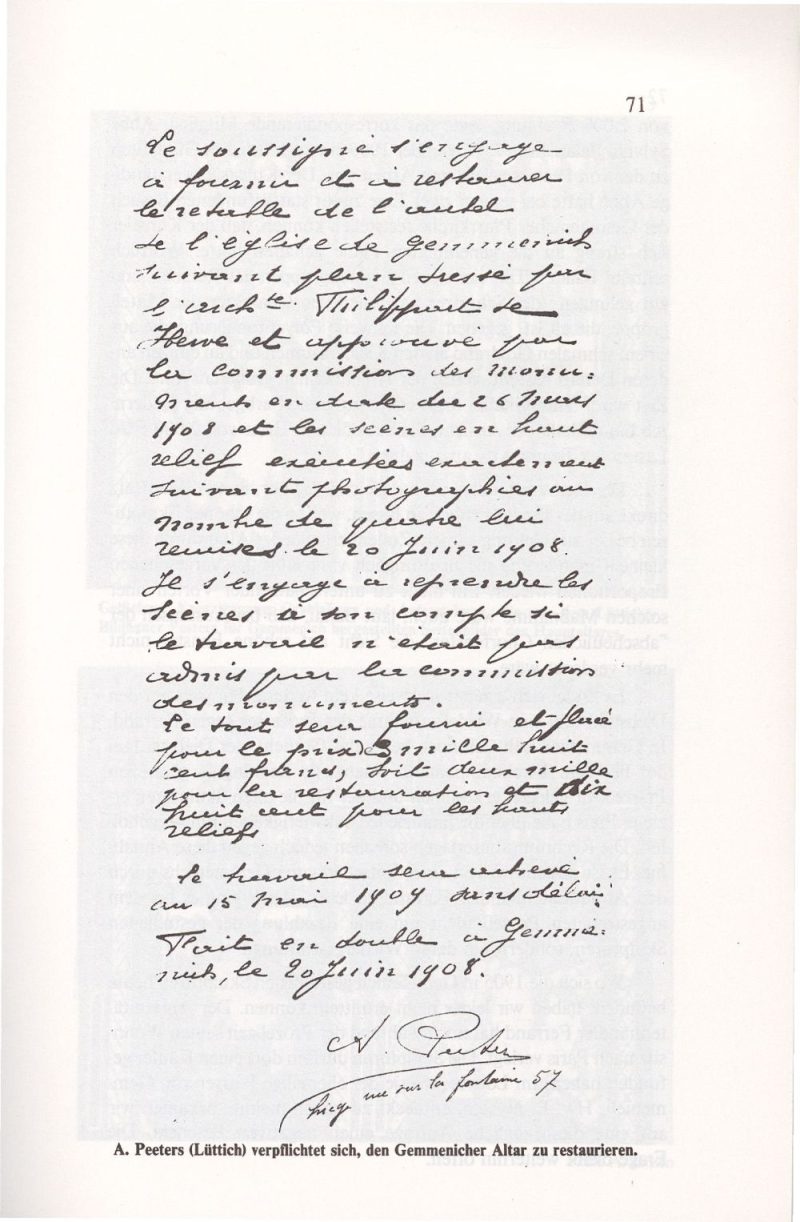 71
Le soussigné s'engage
à fournir et à restaurer
le retable de l'autel
de l'église de Gemmenich
suivant plan dressé par
l'archte. Philippart de
Herve et approuvé par
la commission des monu:
ments en date du 26 mars
1908 et les scènes en haut
relief exécutées exactement
suivant photographies au
nombre de quatre lui
remises le 20 Juin 1908.
Je s'engage à reprendre les
scènes à son compte si
le travail n'était pas
admis par la commission
des monuments.
Le tout sera fourni et placé
pour le prix de 3 mille huit
cent francs, soit deux mille
pour la restauration et dix
huit cent pour les hauts
reliefs
Le travail sera achevé
au 15 mai 1909 sans délai
Fait en double à Gemme:
nich, le 20 Juin 1908.
A Peeters
Liège rue sur la fontaine 57
A. Peeters (Lüttich) verpflichtet sich, den Gemmenicher Altar zu restaurieren.